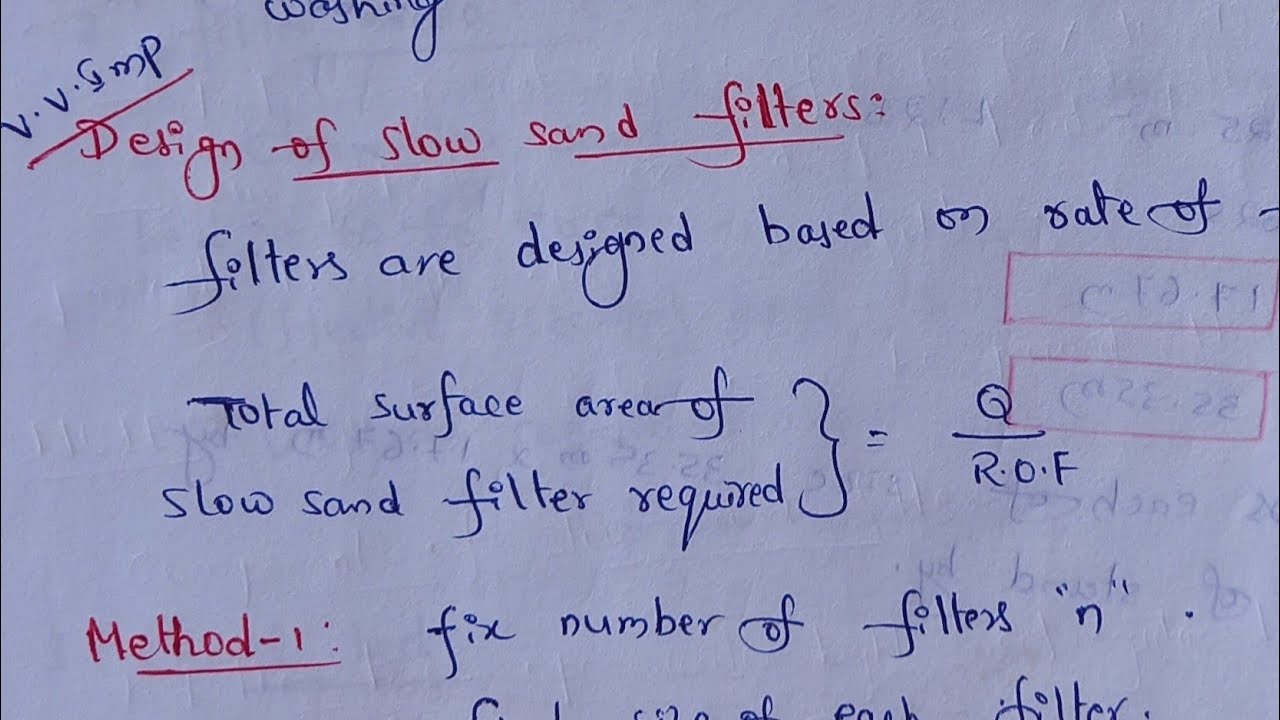 washing
V.V.Imp
Design of slow sand filters:
filters are designed based on rate of
Total surface area of
slow sand filter required } = Q / R.O.F
Method-1: fix number of filters "n".
size of each filter.